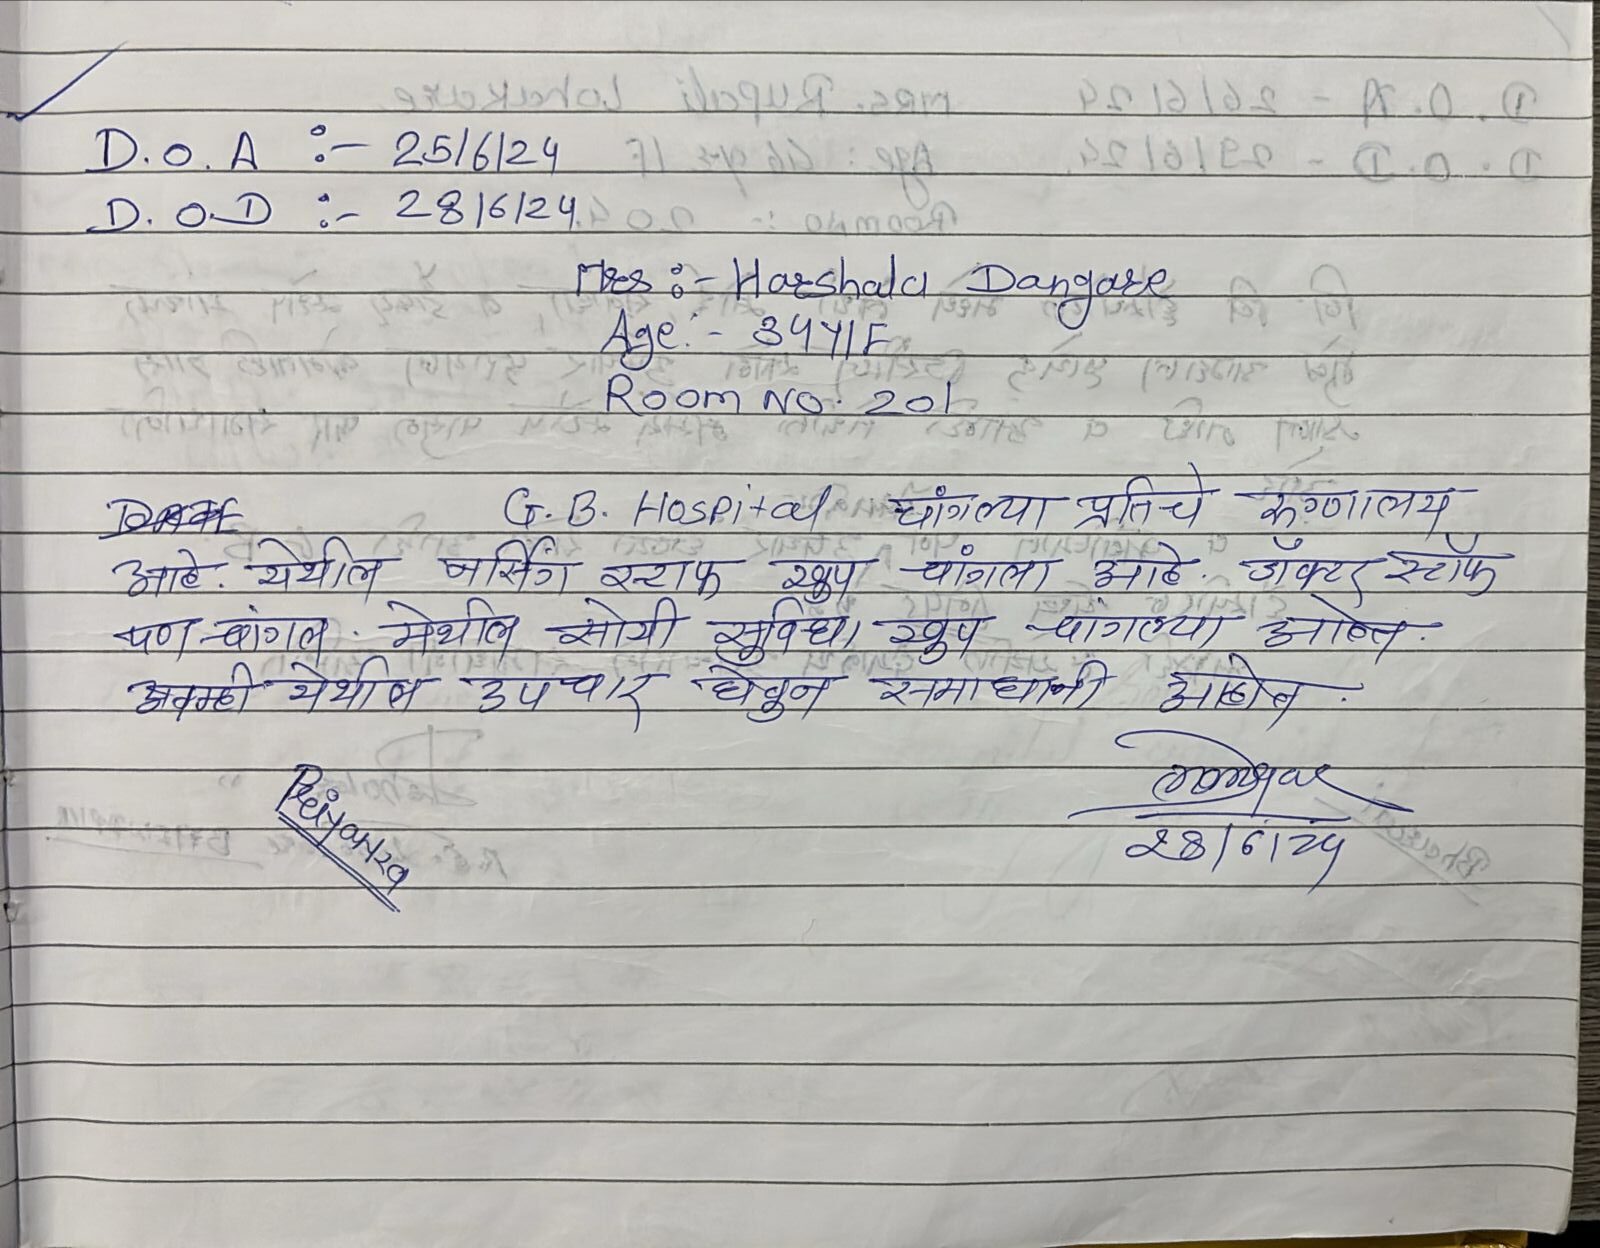 D.O.A :- 25/6/24
D.O.D :- 28/6/24
Mrs :- Harshala Dangare
Age :- 34Y/F
Room No. 201
G.B. Hospital चांगल्या प्रतिचे रुग्णालय
आहे. येथील नर्सिंग स्टाफ खुप चांगला आहे. डॉक्टर स्टॉफ
पण चांगल. येथील सोयी सुविधा खुप चांगल्या आहेत.
आम्ही येथील उपचार घेवुन समाधानी आहोत.
Priyanka
28/6/24